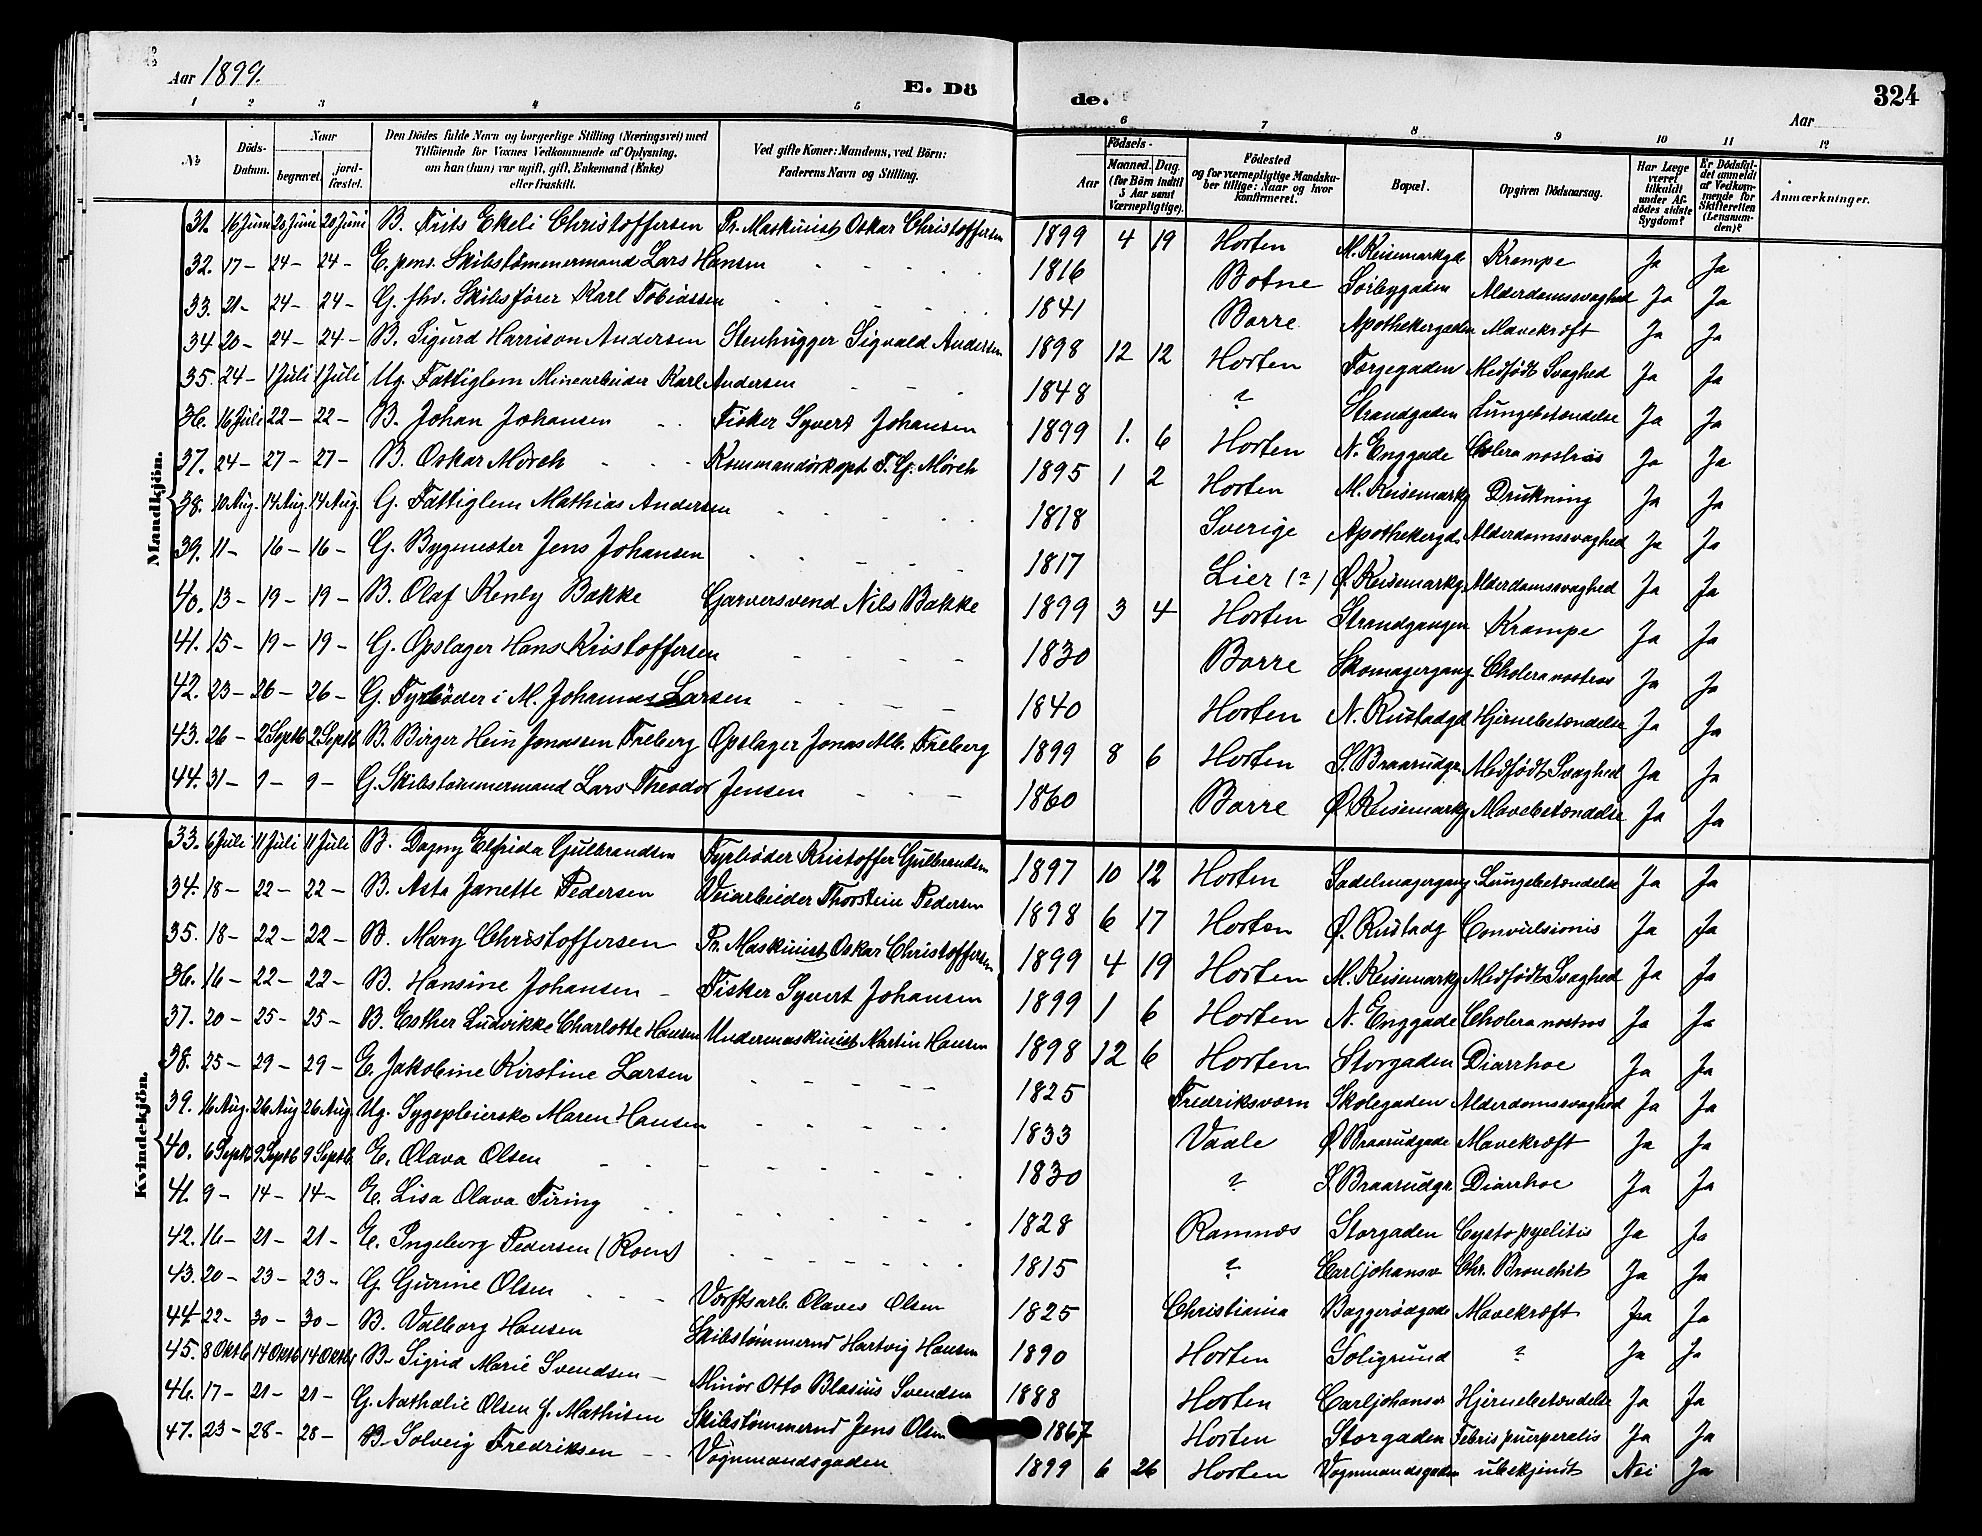 Aar 1899.
E. Dö
de.
Aar
324
1 2 3 4 5 6 7 8 9 10 11 12
№ Döds-Datum. Naar begravet. jord-fæstet. Den Dödes fulde Navn og borgerlige Stilling (Næringsvei) med Tilföiende for Voxnes Vedkommende af Oplysning, om han (hun) var ugift, gift, Enkemand (Enke) eller fraskilt. Ved gifte Koner: Mandens, ved Börn: Faderens Navn og Stilling. Födsels- Aar Maaned. Dag. (for Börn indtil 5 Aar samt Værnepligtige). Födested og for værnepligtige Mandskaber tillige: Naar og hvor konfirmeret. Bopæl. Opgiven Dödsaarsag. Har Læge været tilkaldt under Afdödes sidste Sygdom? Er Dödsfaldet anmeldt af Vedkommende for Skifteretten (Lensmanden)? Anmærkninger.
Mandkjön.
31. 16 Juni 20 Juni 20 Juni B. Nils Ekeli Christoffersen Pr. Maskinist Oskar Christoffersen 1899 4 19 Horten M. Keisemarkgd Krampe Ja Ja
32. 17 – 24 – 24 – E. pens. Skibstømmermand Lars Hansen 1816 Botne Sørbygaden Alderdomssvaghed Ja Ja
33. 21 – 24 – 24 – G. fhv. Skibsfører Karl Tobiassen 1841 Borre Apothekergaden Mavekræft Ja Ja
34 20 – 24 – 24 – B. Sigurd Harrison Andersen Stenhugger Sigvald Andersen 1898 12 12 Horten Torgegaden Medfødt Svaghed Ja Ja
35. 24 – 1 Juli 1 Juli Ug. Fattiglem Minearbeider Karl Andersen 1848 ? Strandgaden Lungebetændelse Ja Ja
36. 16 Juli 22 – 22 – B. Johan Johansen Fisker Syvert Johansen 1899 1. 6 Horten N. Enggade Colera nostras Ja Ja
37. 24 – 27 – 27 – B. Oskar Mörch Kommandörkapt. F. G. Mörch 1895 1 2 Horten M. Keisemarkg Drukning Ja Ja
38. 10 Aug. 14 Aug. 14 Aug. G. Fattiglem Mathias Andersen 1818 Sverige Apothekergd. Alderdomssvaghed Ja Ja
39. 11 – 16 – 16 – G. Bygmester Jens Johansen 1817 Lier (?) Ø. Keisemarkg. Alderdomssvaghed Ja Ja
40. 13 – 19 – 19 – B. Olaf Kenly Bakke Garversvend Nils Bakke 1899 3 4 Horten Strandgangen Krampe Ja Ja
41. 15 – 19 – 19 – G. Opslager Hans Kristoffersen 1830 Borre Skomagergang Cholera nostras Ja Ja
42. 23 – 26 – 26 – G. Fyrbøder i M. Johannes Larsen 1840 Horten N. Rustadgd Hjernebetændelse Ja Ja
43. 26 – 2 Septb 2 Septb B. Birger Hein Jonassen Freberg Opslager Jonas Alb. Freberg 1899 8 6 Horten S. Braarudgr. Medfødt Svaghed Ja Ja
44. 31 – 9 – 9 – G. Skibstømmermand Lars Theodor Jensen 1860 Borre Ø. Keisemarkg Mavebetændelse Ja Ja
Kvindekjön.
33. 6 Juli 11 Juli 11 Juli B. Dagny Elfrida Gulbrandsen Fyrbøder Kristoffer Gulbrandsen 1897 10 12 Horten Sadelmagergang. Lungebetændelse Ja Ja
34. 18 – 22 – 22 – B. Asta Janette Pedersen Veiarbeider Thorstein Pedersen 1898 6 17 Horten Ø. Rustadg Convulsionis Ja Ja
35. 18 – 22 – 22 – B. Mary Christoffersen Pr. Maskinist Oskar Christoffersen 1899 4 19 Horten M. Keisemarkg Medfødt Svaghed Ja Ja
36. 16 – 22 – 22 – B. Hansine Johansen – Fisker Syvert Johansen 1899 1 6 Horten N. Enggade Cholera nostras Ja Ja
37. 20 – 25 – 25 – B. Esther Ludvikke Charlotte Hansen Undermaskinist Martin Hansen 1898 12 6 Horten Storgaden Diarrhoe Ja Ja
38. 25 – 29 – 29 – E. Jakobine Kirstine Larsen 1825 Fredriksværn Skolegaden Alderdomssvaghed Ja Ja
39. 16 Aug. 26 Aug 26 Aug. Ug. Sygepleierske Maren Hansen 1833 Vaale Ø Braarudgade Mavekræft Ja Ja
40. 6 Septb 9 Septb 9 Septb. E. Olava Olsen 1830 ? S. Braarudgr Diarrhoe Ja Ja
41. 9 – 14 – 14 – E. Lisa Olava Firing 1828 Ramnæs Storgaden Cystopyelitis Ja Ja
42. 16 – 21 – 21 – E. Ingeborg Pedersen (Roen) 1815 ? Carljohansv Chr. Bronchit Ja Ja
43. 20 – 23 – 23 – G. Gurine Olsen Værftsarb. Olaves Olsen 1825 Christiania Baggerødgade Mavekræft Ja Ja
44 22 – 30 – 30 – B. Valborg Hansen Skibstømmermd Hartvig Hansen 1890 Horten Soligrund ? Ja Ja
45. 8 Oktb 14 Oktb 14 Oktb B. Sigrid Marie Svendsen – Minör Otto Blasius Svendsen 1888 Horten Carljohansv Hjernebetændelse Ja Ja
46. 17 – 21 – 21 – G. Nathalie Olsen f. Mathisen Skibstømmermd Jens Olsen 1867 Horten Storgaden Febris puerperalis Ja Ja
47. 23 – 28 – 28 – B. Solveig Fredriksen – – Vognmandsgaden 1899 6 26 Horten Vognmandsgaden ubekjendt Nei Ja